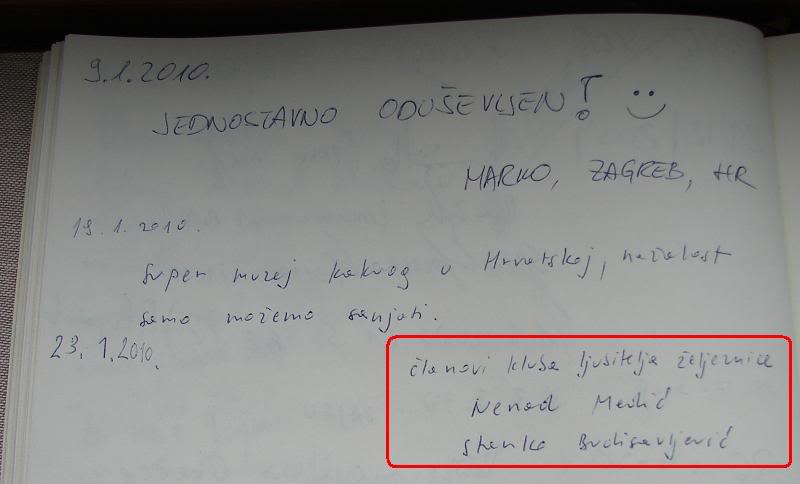 9.1.2010.
JEDNOSTAVNO ODUŠEVLJEN!
MARKO, ZAGREB, HR
19.1.2010.
Super muzej kakvog u Hrvatskoj, nažalost
samo možemo sanjati.
23.1.2010.
članovi kluba ljubitelja željeznice
Nenad Medić
Stanko Budisavljević